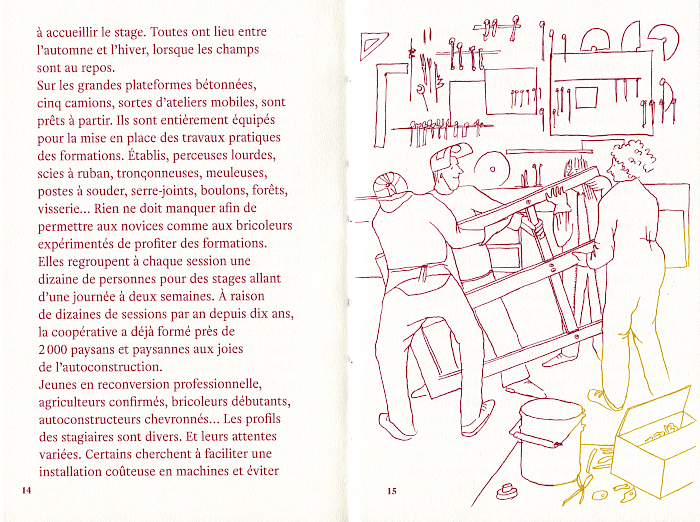 à accueillir le stage. Toutes ont lieu entre
l'automne et l'hiver, lorsque les champs
sont au repos.
Sur les grandes plateformes bétonnées,
cinq camions, sortes d'ateliers mobiles, sont
prêts à partir. Ils sont entièrement équipés
pour la mise en place des travaux pratiques
des formations. Établis, perceuses lourdes,
scies à ruban, tronçonneuses, meuleuses,
postes à souder, serre-joints, boulons, forêts,
visserie... Rien ne doit manquer afin de
permettre aux novices comme aux bricoleurs
expérimentés de profiter des formations.
Elles regroupent à chaque session une
dizaine de personnes pour des stages allant
d'une journée à deux semaines. À raison
de dizaines de sessions par an depuis dix ans,
la coopérative a déjà formé près de
2 000 paysans et paysannes aux joies
de l'autoconstruction.
Jeunes en reconversion professionnelle,
agriculteurs confirmés, bricoleurs débutants,
autoconstructeurs chevronnés... Les profils
des stagiaires sont divers. Et leurs attentes
variées. Certains cherchent à faciliter une
installation coûteuse en machines et éviter
14
15